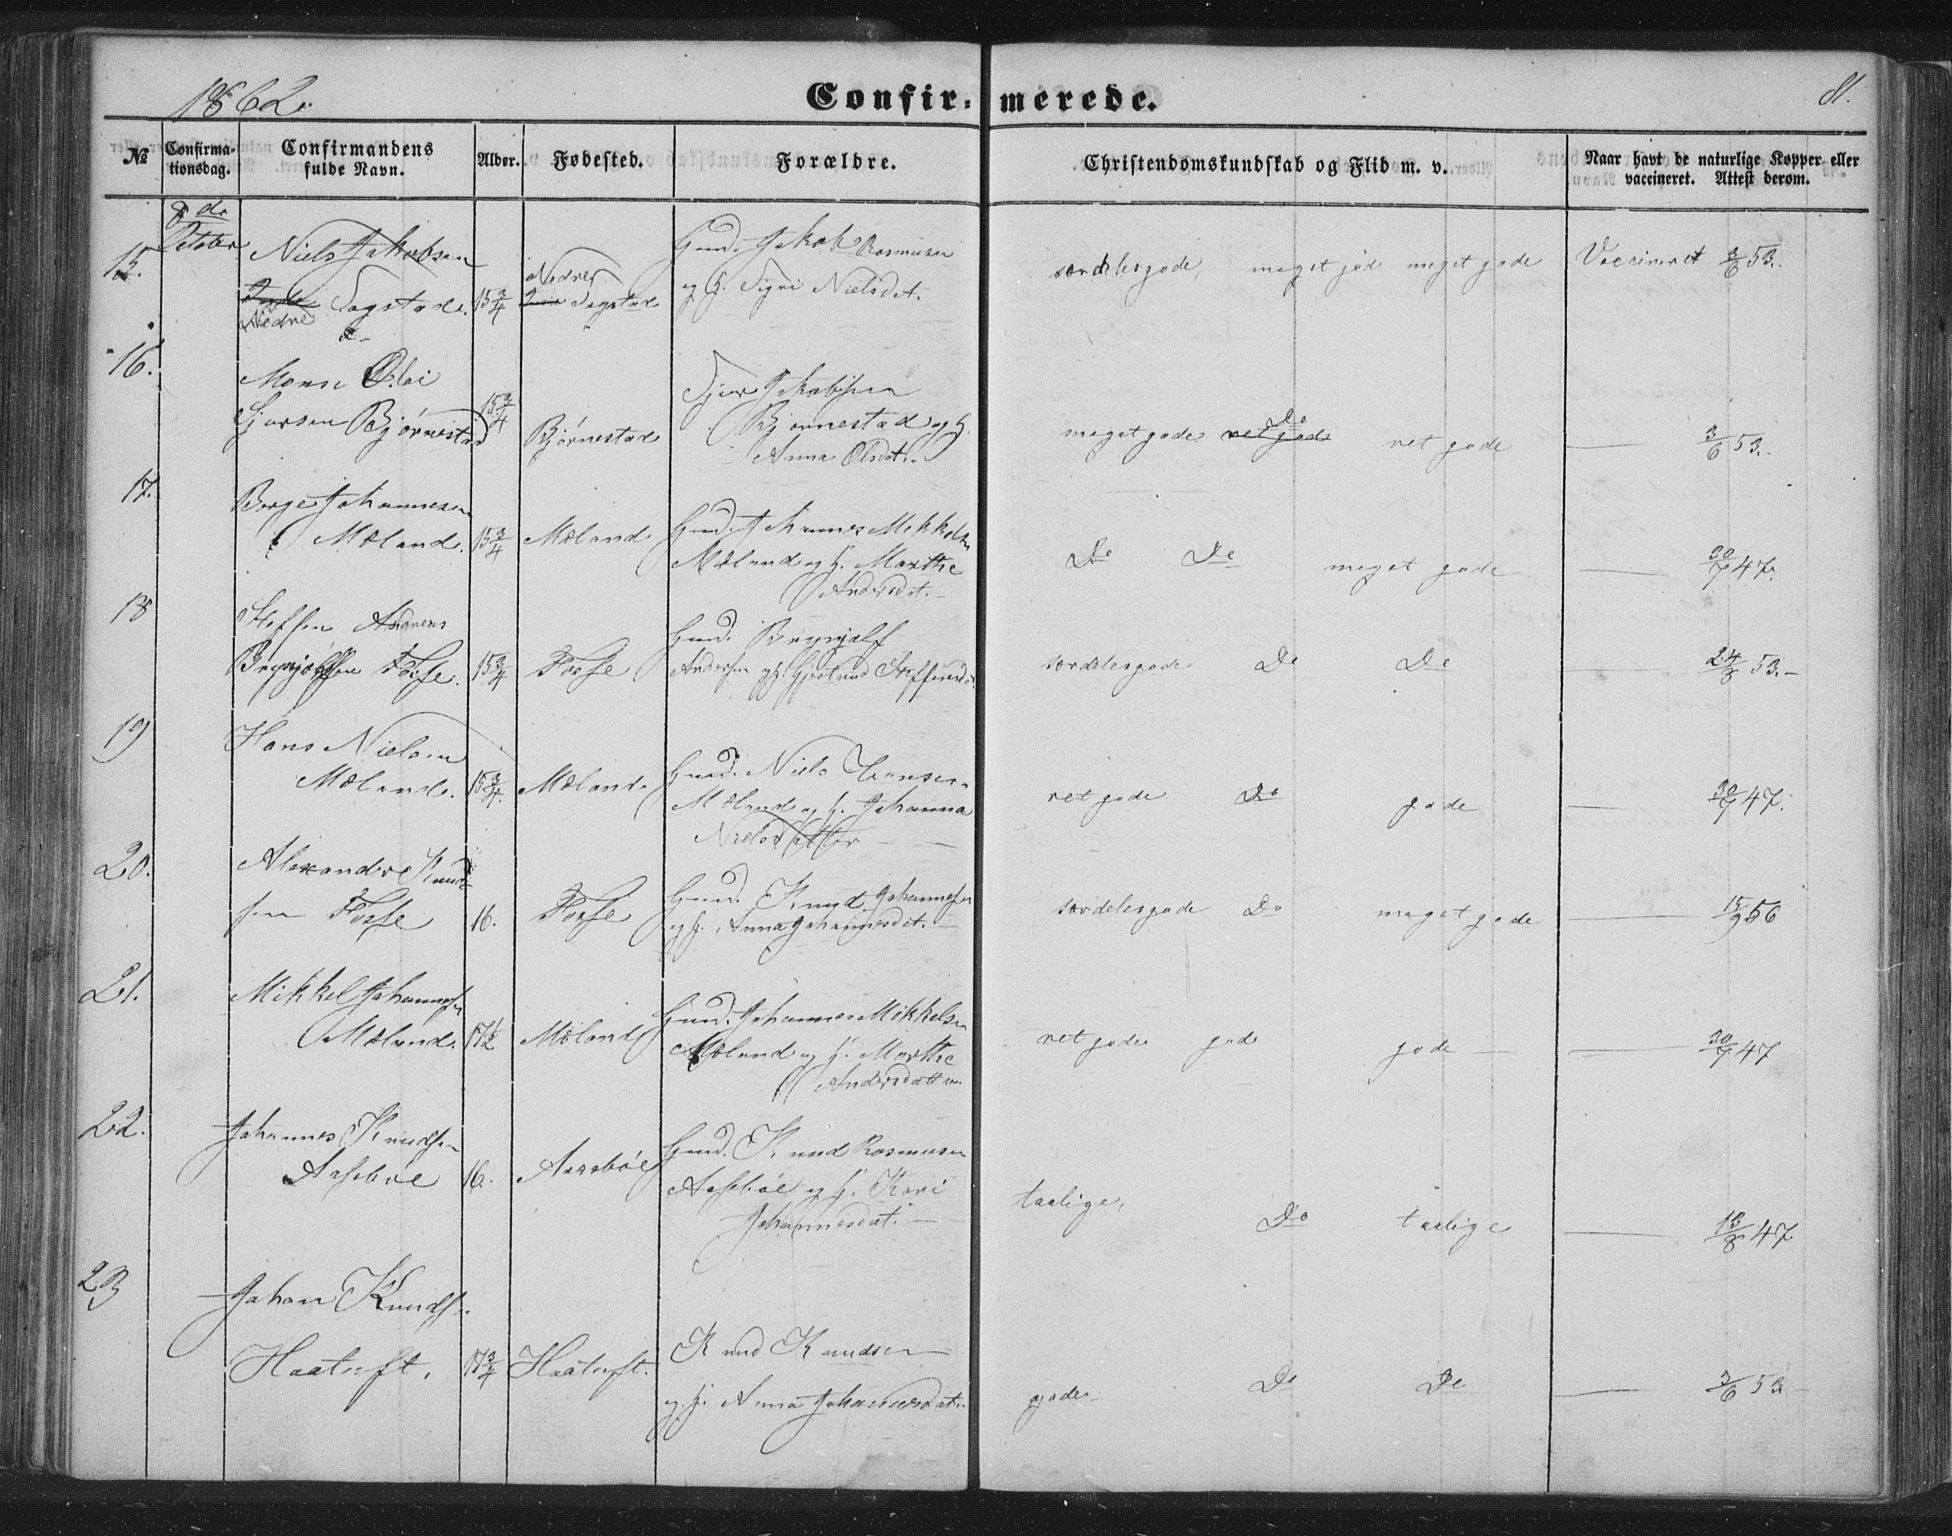 1862.
Confir- merede.
81.
№
Confirma-
tionsdag.
Confirmandens
fulde Navn.
Alder.
Fødested.
Forældre.
Christendomskundskab og Flid m. v.
Naar havt de naturlige Kopper eller
vaccineret. Attest derom.
October
15.
Niels Jakobsen
Nedre Sagstad.
15 3/4
Nedre
Sagstad
Gmd. Jakob Rasmusen
og H. Sigri Nielsdat.
særdeles gode, meget god meget gode
Vaccineret 3/6 53.
16.
Mons Olai
Sjursen Bjørnestad
15 3/4
Bjørnestad
Sjur Jakobsen
Bjørnestad og H.
Anna Olsdat.
meget gode ret gode Do ret gode
3/6 53.
17.
Børge Johannesen
Mæland.
15 3/4
Mæland
Gmd. Johannes Mikkelsen
Mæland og H. Marthe
Andersdat.
Do Do meget gode
30/7 47.
18
Steffen Andreas
Brynjolfsen Fosse.
15 3/4
Fosse
Gmd. Brynjolf
Andersen og H. Steffensdat
særdeles gode Do Do
24/8 53.
19
Hans Nielsen
Mæland.
15 3/4.
Mæland.
Gmd. Niels Hansen
Mæland og H. Johanna
Nielsdatter
ret gode Do gode
30/7 47.
20.
Alexander Knud-
sen Fosse
16.
Fosse
Gmd. Knud Johannesen
og H. Anna Johannesdat.
særdeles gode Do meget gode
15/9 56
21.
Mikkel Johannesen
Mæland.
17 1/2
Mæland
Gmd. Johannes Mikkelsen
Mæland og H. Marthe
Andersdatter.
ret gode god gode
30/7 47
22.
Johannes Knudsen
Aasebøe
16.
Aasebøe
Gmd. Knud Rasmusen
Aasebøe og H. Kari
Johannesdat.
taalige, Do taalige
13/8 47
23
Johan Knuds.
Haatuft.
17 3/4
Haatuft.
Knud Knudsen
og H. Anna Johannesdat.
gode Do Do
3/6 53